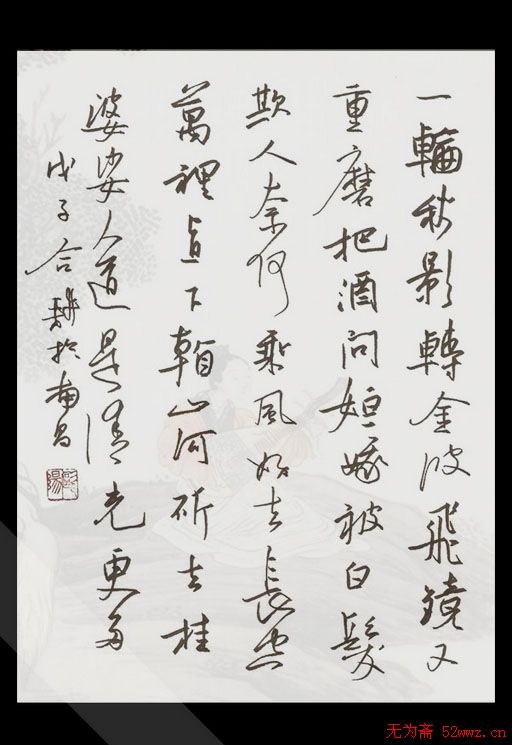 一輪秋影轉金波飛鏡又
重磨把酒問姮娥被白髮
欺人奈何乘風好去長空
萬裡直下看山河斫去桂
婆娑人道是清光更多
戊子合耕於南昌
无为斋 52wwz.cn